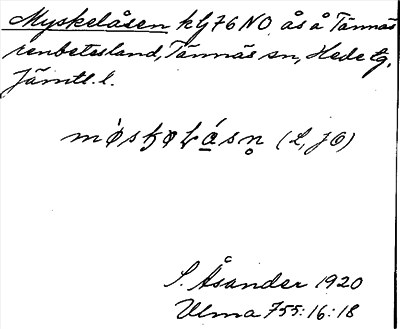 Myskelåsen klg 76 NO ås å Tännäs
renbetesland, Tännäs sn, Hede tg,
Jämtl. l.
(L, JO)
S. Åsander 1920
Ulma 755:16:18